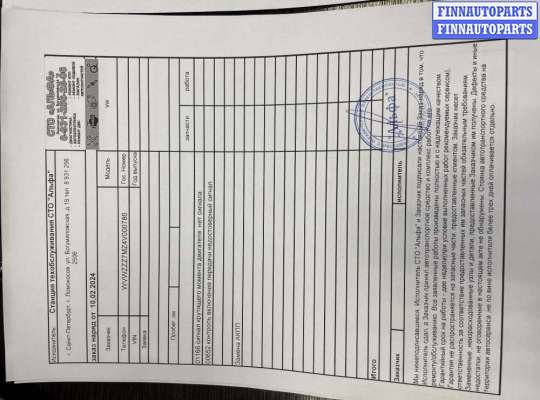 FINNAUTOPARTS
FINNAUTOPARTS
FINNAUTOPARTS
Исполнитель: Станция техобслуживания СТО "Альфа"
г. Санкт-Петербург, г. Ломоносов ул.
СТО «АЛЬФА»
заказ наряд от 10.02.2024
Заказчик Модель VW
Телефон Гос. Номер
VIN Год выпуска
Замена
Пробег км
запчасти работа
01166 сигнал крутящего момента двигателя нет сигнала
00652 контроль включения передачи недостоверный сигнал
Замена АКПП
Итого
Заказчик исполнитель
"Альфа"
Мы нижеподписавшиеся, Исполнитель СТО "Альфа" и Заказчик подписали настоящий Заказ-наряд в том, что
Исполнитель сдал, а Заказчик принял автотранспортное средство и комплекс работ по его
ремонту/обслуживанию. Все заявленные работы произведены полностью и с надлежащим качеством.
Гарантийный срок на работы - две недели(при условии выполненных работ рекомендуемых сервисом).
Гарантия не распространяется на запасные части, предоставленные клиентом. Заказчик несет
ответственность за соответствие предоставленных им запасных частей обязательным требованиям.
Замененные, неизрасходованные узлы и детали, предоставленные Заказчиком им получены. Дефекты и иные
недостатки, не оговоренные в настоящем акте не обнаружены. Стоянка автотранспортного средства на
территории автосервиса, не по вине исполнителя более трех дней оплачивается отдельно.